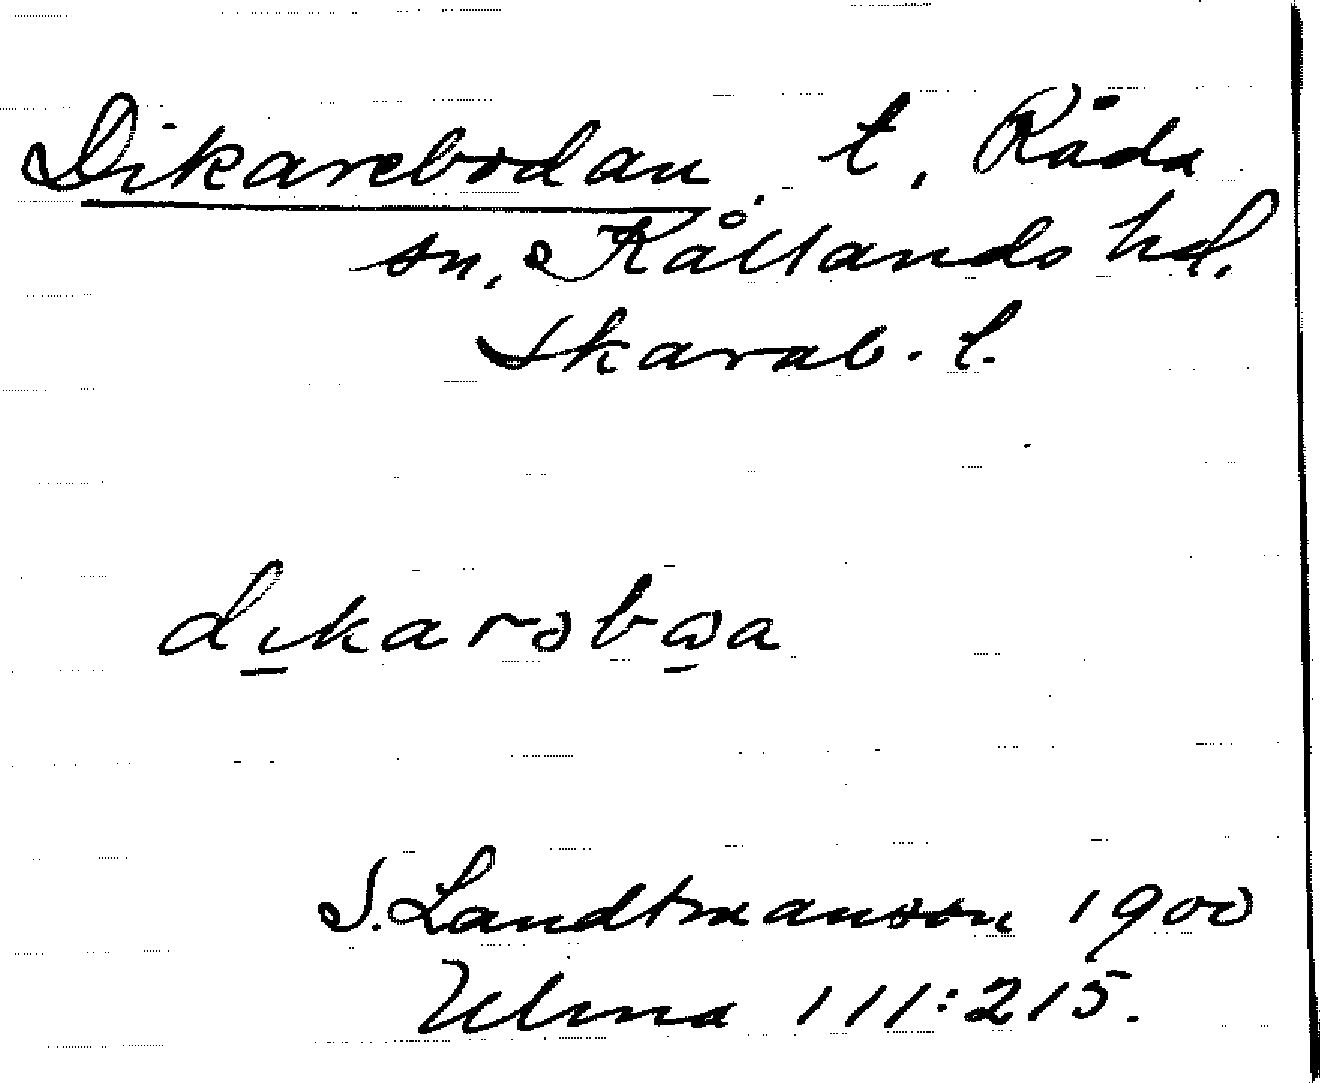 Dikarebodan, t, Råda
sn, Kållands hd.
Skarab. l.
dikarəbɷa
S. Landtmanson 1900
Ulma 111:215.